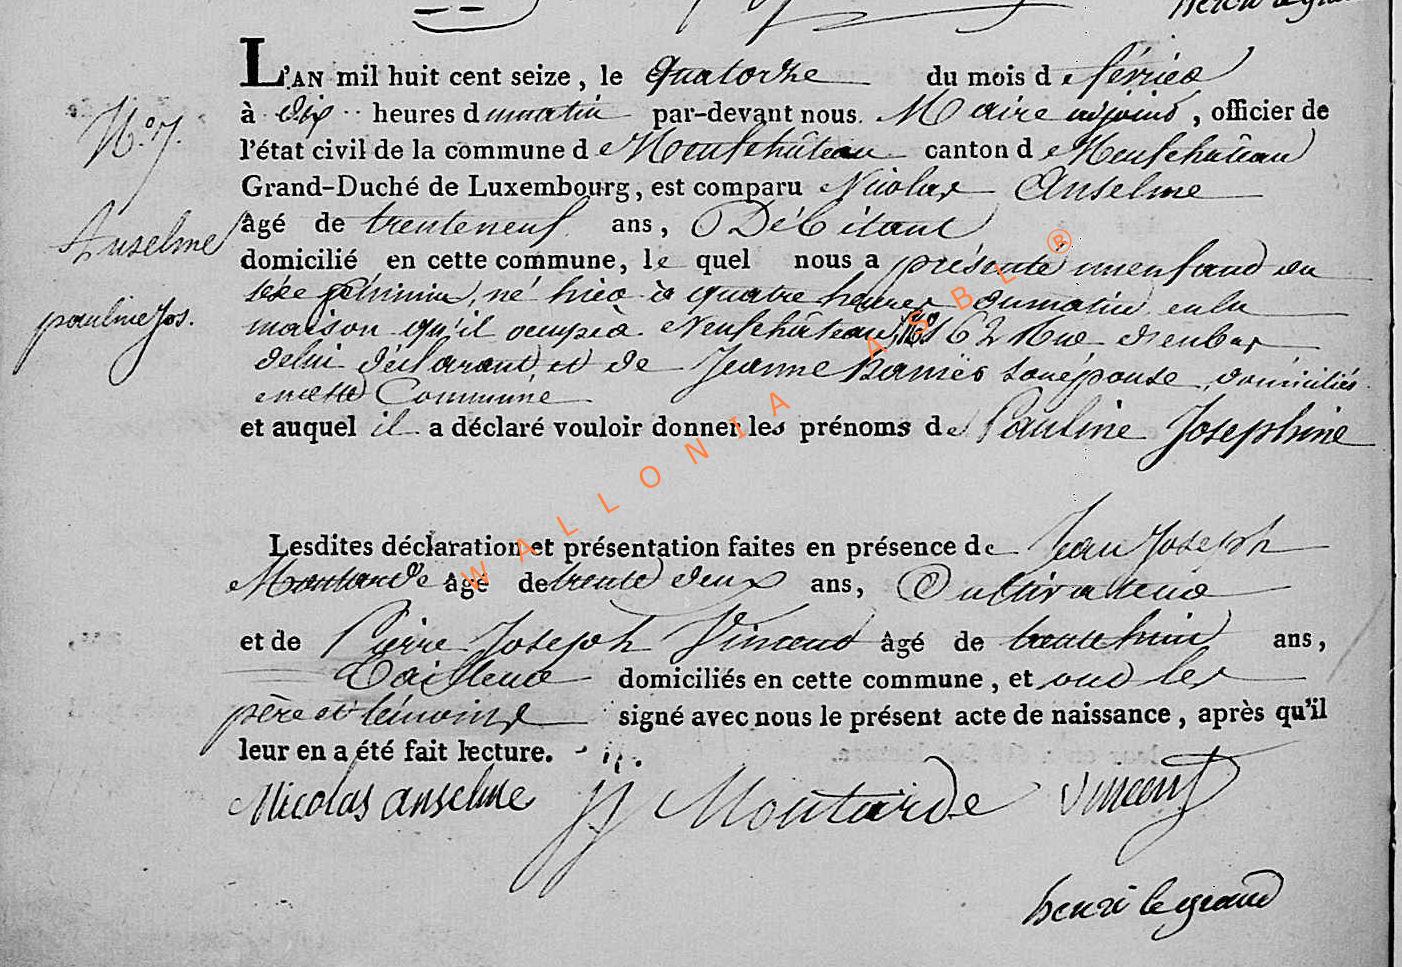 henri legrand
L'AN mil huit cent seize, le quatorze du mois de février
N.º 7.
à dix heures du matin par-devant nous Maire adjoint, officier de
l'état civil de la commune de Neufchâteau canton de Neufchâteau
Grand-Duché de Luxembourg, est comparu Nicolas Anselme
Anselme
âgé de trente neuf ans, Débitant
domicilié en cette commune, le quel nous a présenté un enfant du
pauline Jos.
sexe féminin, né hier à quatre heures du matin en la
maison qu'il occupe à Neufchâteau, Nº 162 Rue d'enbas
de lui déclarant et de Jeanne son épouse, domiciliés
en cette Commune
et auquel il a déclaré vouloir donner les prénoms de Pauline Josephine
Lesdites déclaration et présentation faites en présence de Jean Joseph
Moutarde âgé de trente deux ans, Cultivateur
et de Pierre Joseph Vincent âgé de trente huit ans,
Tailleur domiciliés en cette commune, et ont les
père et témoins signé avec nous le présent acte de naissance, après qu'il
leur en a été fait lecture.
Nicolas anselme JJ Moutarde Vincent
henri legrand
WALLONIA ASBL ®